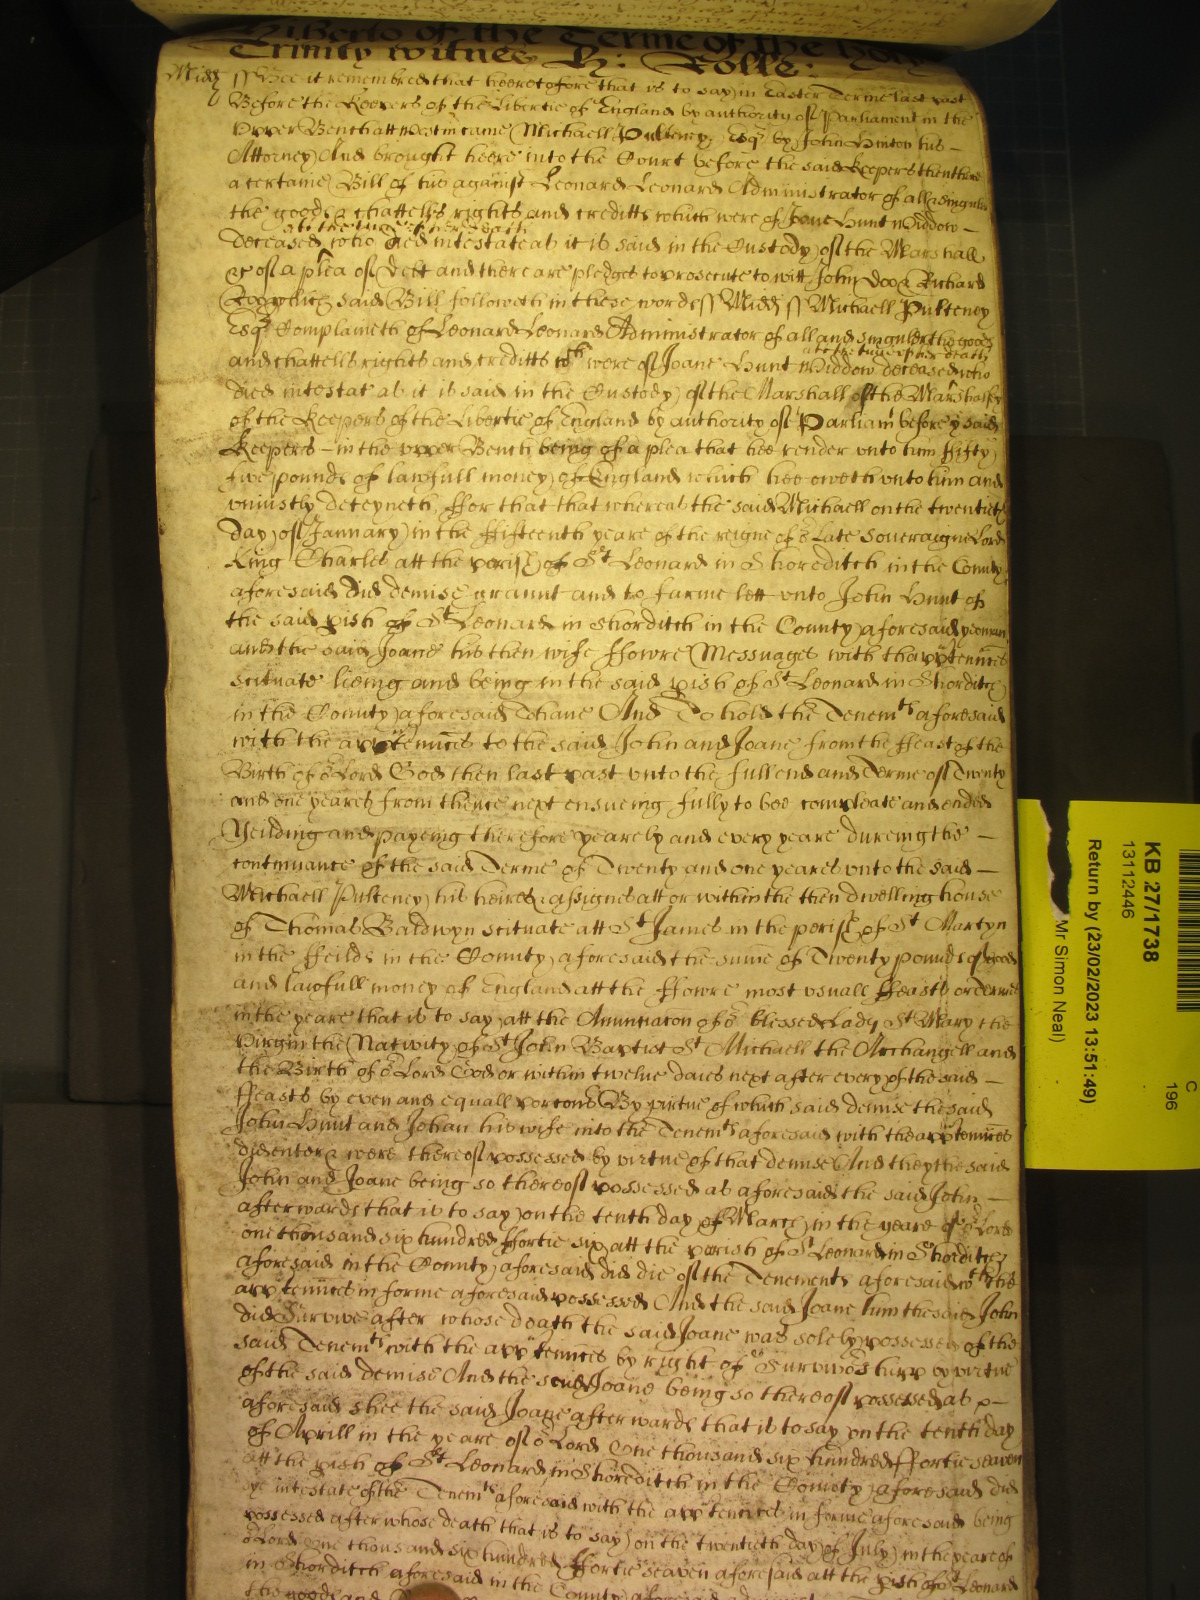 Hitherto of the Terme of the holy
Trinity witnes H: Rolle:
Midd ss Bee it remembred that heeretofore that is to say in Easter Terme last past
Before the Keepers of the Libertie of England by authority of Parliament in the
Vpper Bench att Westm came Michaell Pulteney Esqr by John Hinton his –
Attorney And brought heere into the Court before the said Keepers then there
a certaine Bill of his against Leonard Leonard Administrator of all & singuler
the goods & chattells rights and creditts which were of Joane Hunt Widdow –
att the tyme of her death
deceased who died intestate as it is said in the Custody of the Marshall
&c of a plea of Debt and there are pledges to prosecute to witt John Doo & Richard
Roo which said Bill followeth in these words ss Midd ss Michaell Pulteney
Esqr Complaineth of Leonard Leonard Administrator of all and singuler the goods
att the tyme of her death
and chattells rights and creditts wch were of Joane Hunt Widdow deceased who
died intestat as it is said in the Custody of the Marshall of the Marshalsey
of the Keepers of the Libertie of England by authority of Parliamt before ye said
Keepers – in the vpper Bench being of a plea that hee render vnto him fifty
five pounds of lawfull money of England which hee oweth vnto him and
vniustly deteyneth ffor that that whereas the said Michaell on the twentieth
day of January in the ffifteenth yeare of the reigne of or Late Soveraigne Lord
King Charles att the parish of St Leonard in Shoreditch in the County
aforesaid did demise graunt and to farme lett vnto John Hunt of
the said pish of St Leonard in Shorditch in the County aforesaid yeoman
and the said Joane his then wife ffowre Messuages with thapptennces
scituate lieing and being in the said pish of St Leonard in Shorditch
in the County aforesaid To haue And To hold the Tenemts aforesaid
with the apptennces to the said John and Joane from the ffeast of the
Birth of or Lord God then last past vnto the full end and Terme of Twenty
and one yeares from thence next ensueing fully to bee compleate and ended
Yeilding and payeing therefore yearely and every yeare dureing the –
continuance of the said Terme of Twenty and one yeares vnto the said –
Michaell Pulteney his heires & assignes att or within the then dwelling house
of Thomas Baldwyn scituate att St James in the perish of St Martyn
in the ffeilds in the County aforesaid the sume of Twenty pounds of good
and lawfull money of England att the ffowre most vsuall ffeasts or termes
in the yeare that is to say att the Anunciacon of or blessed Lady St Mary the
Virgin the Nativity of St John Baptist St Michaell the Archangell and
the Birth of or Lord God or within twelue daies next after every of the said –
ffeasts by even and equall porcons By virtue of which said demise the said
John Hunt and Johan his wife into the Tenemts aforesaid with the apptennces
did enter & were thereof possessed by virtue of that demise And they the said
John and Joane being so thereof possessed as aforesaid the said John –
afterwards that is to say on the tenth day of March in the yeare of or Lord
one thousand six hundred ffortie six att the parish of St Leonard in Shorditch
aforesaid in the County aforesaid did die of the Tenements aforesaid wth the
apptennces in forme aforesaid possessed And the said Joane him the said John
did Survive after whose death the said Joane was solely possessed of the
said Tenemts with the apptennces by right of Survivorshipp by virtue
of the said demise And the said Joane being so thereof possessed as
aforesaid shee the said Joane afterwards that is to say on the tenth day
of Aprill in the yeare of or Lord One thousand six hundred ffortie seaven
att the pish of St Leonard in Shoreditch in the County aforesaid did
dye intestate of the Tenemts aforesaid with the apptennces in forme aforesaid being
possessed after whose death that is to say on the twentieth day of July in the yeare of
or Lord one thousand six hundred ffortie seaven aforesaid att the pish of St Leonard
in Shorditch aforesaid in the County aforesaid
the goods and
KB 27/1738
13112446
Return by (23/02/2023 13:51:49)
Mr Simon Neal)
C
196